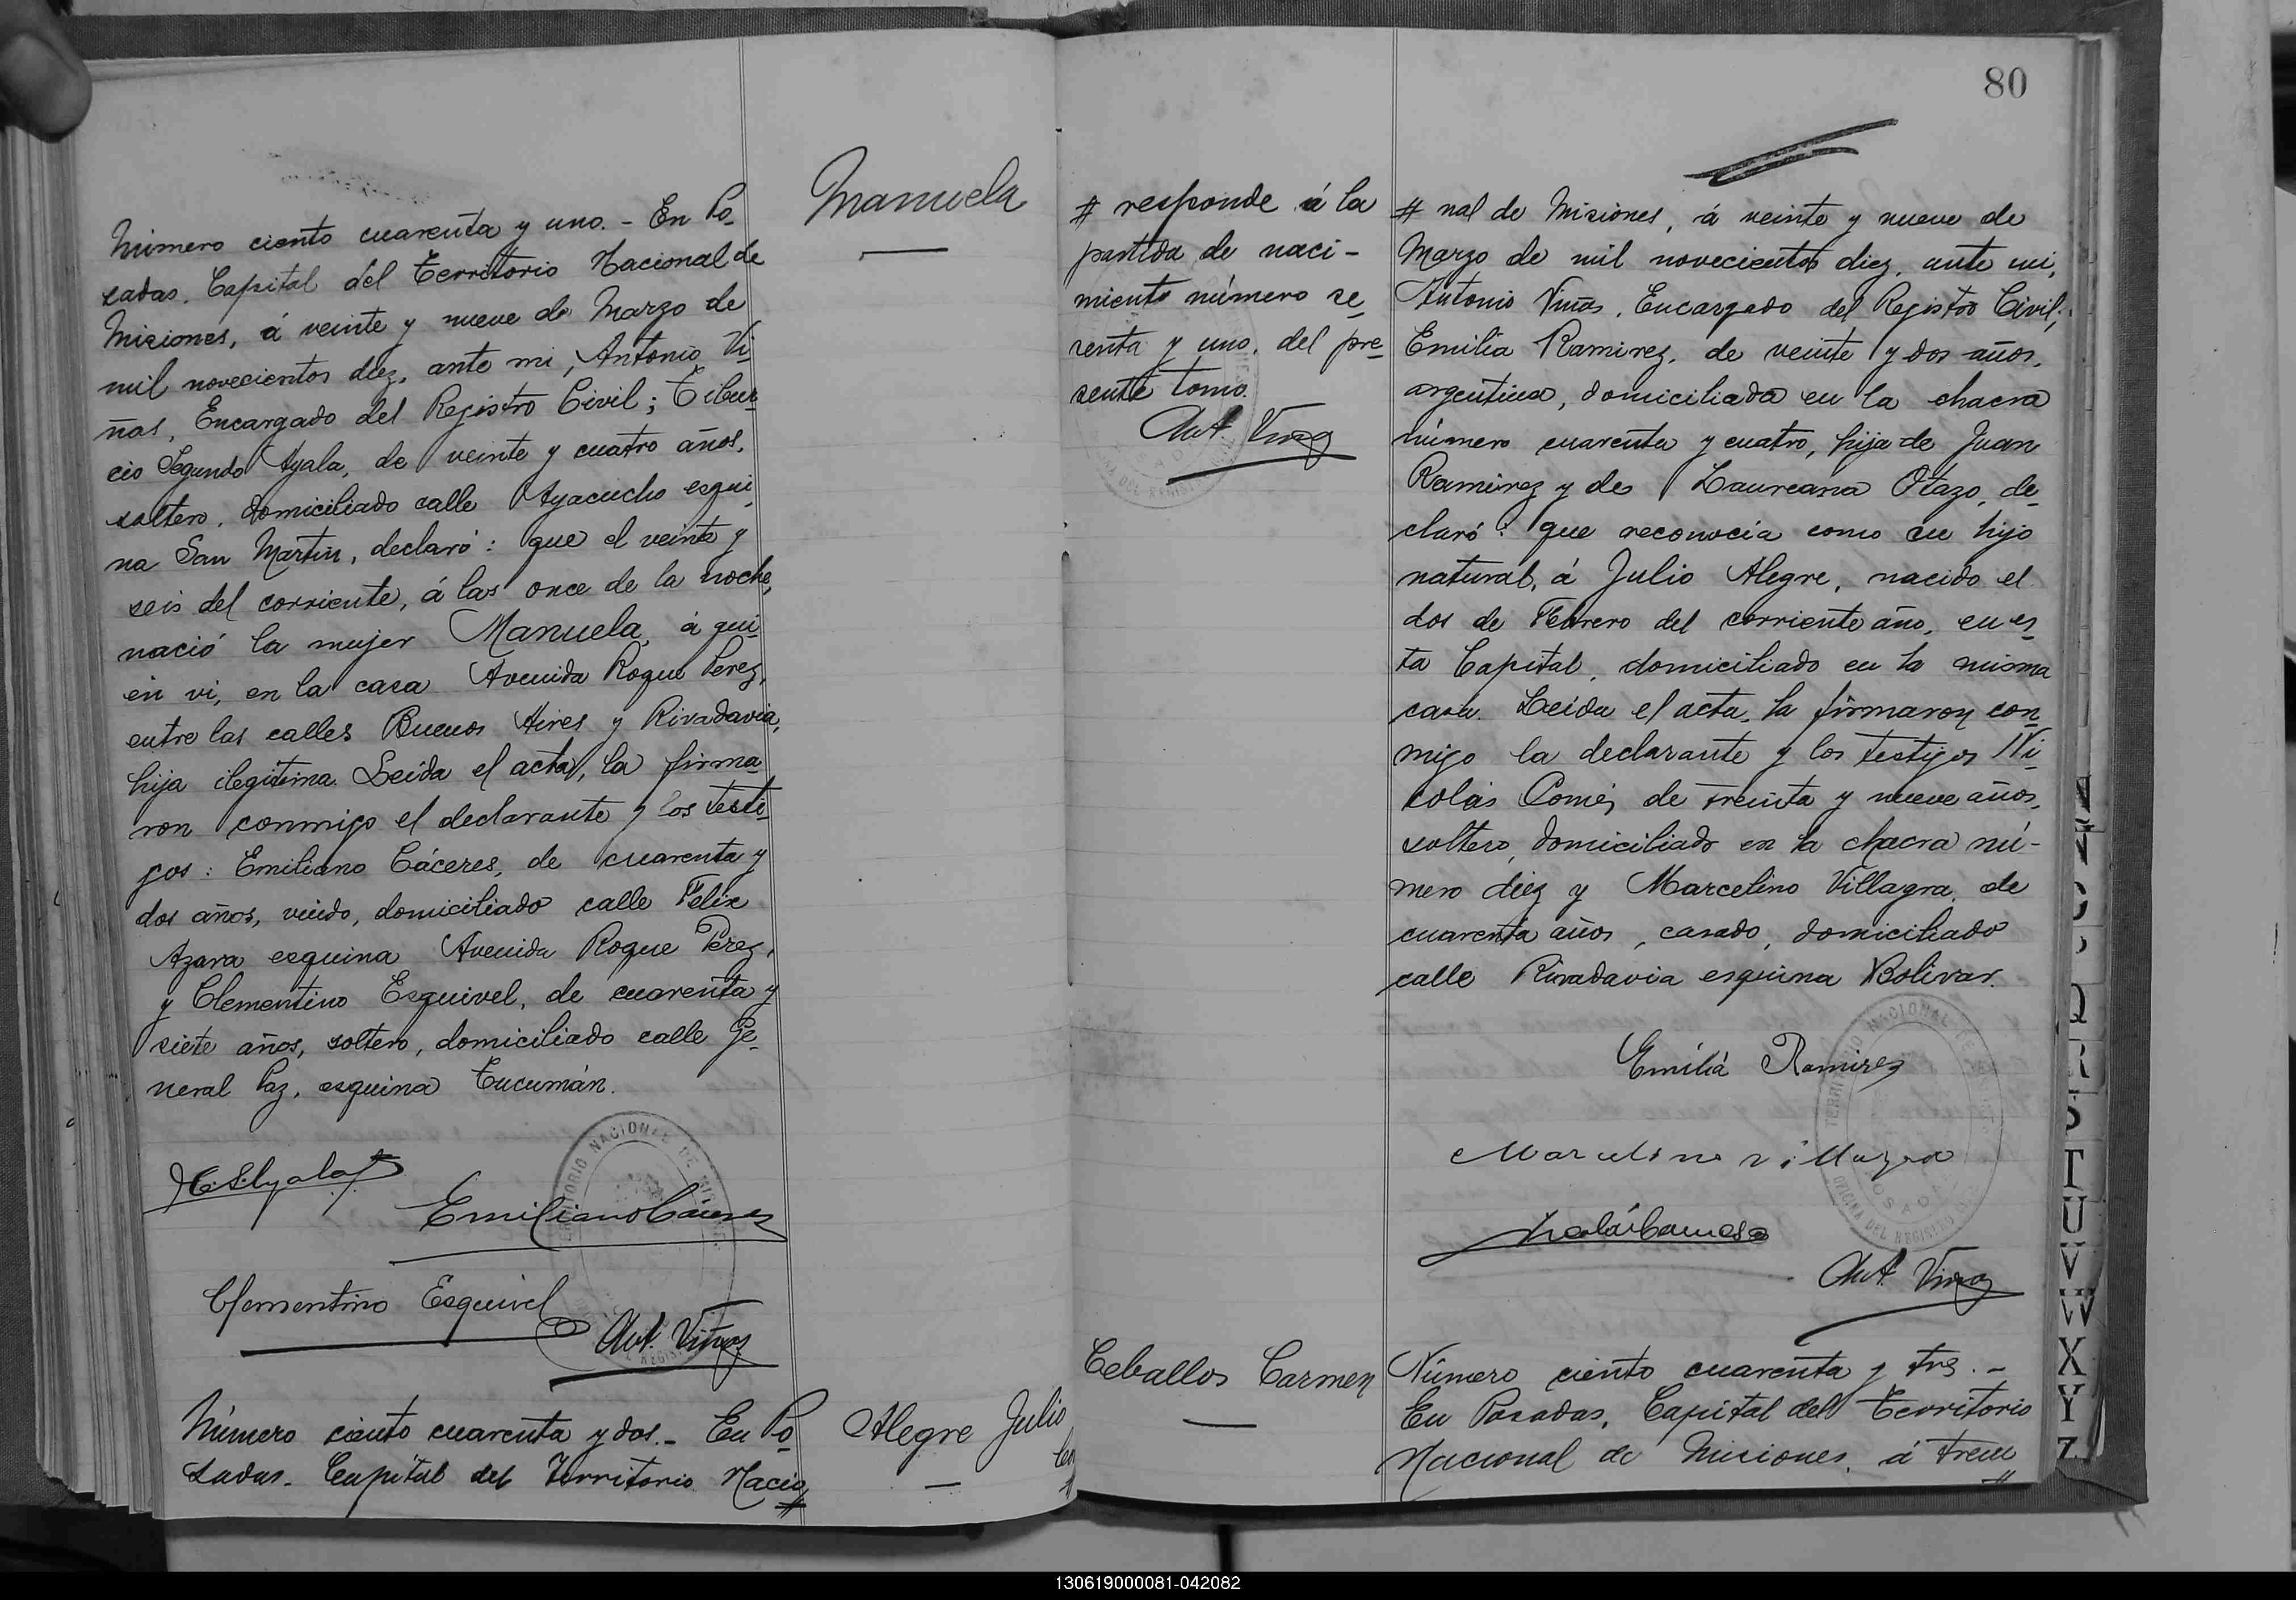 Manuela
Número ciento cuarenta y uno. - En Po-
sadas, Capital del Territorio Nacional de
Misiones, á veinte y nueve de Marzo de
mil novecientos diez, ante mi, Antonio Vi-
ñas, Encargado del Registro Civil; Tibur-
cio Segundo Ayala, de veinte y cuatro años,
soltero, domiciliado calle Ayacucho esqui-
na San Martin, declaró: que el veinte y
seis del corriente, á las once de la noche,
nació la mujer Manuela, á qui-
én vi, en la casa Avenida Roque Perez,
entre las calles Buenos Aires y Rivadavia,
hija ilegitima. Leída el acta, la firma-
ron conmigo el declarante y los testi-
gos: Emiliano Cáceres, de cuarenta y
dos años, viudo, domiciliado calle Felix
Azara esquina Avenida Roque Perez,
y Clementino Esquivel, de cuarenta y
siete años, soltero, domiciliado calle Ge-
neral Paz, esquina Tucumán.
Emiliano Cáceres
Clementino Esquivel
Ant. Viñas
Alegre Julio
Número ciento cuarenta y dos. - En Po-
sadas. Capital del Territorio Nacio
#
80
# responde á la
partida de naci-
miento número se-
senta y uno, del pre-
sente tomo.
Ant. Viñas
# nal de Misiones, á veinte y nueve de
Marzo de mil novecientos diez, ante mi,
Antonio Viñas, Encargado del Registro Civil;
Emilia Ramirez, de veinte y dos años,
argentina, domiciliada en la chacra
número cuarenta y cuatro, hija de Juan
Ramirez y de Laureana Otazo, de-
claró: que reconocía como su hijo
natural, á Julio Alegre, nacido el
dos de Febrero del corriente año, en es-
ta Capital, domiciliado en la misma
casa. Leída el acta, la firmaron con-
migo la declarante y los testigos Ni-
colás de treinta y nueve años,
soltero, domiciliado en la chacra nú-
mero diez y Marcelino Villagra, de
cuarenta años, casado, domiciliado
calle Rivadavia esquina Bolivar.
Emilia Ramirez
Marcelino Villagra
Ant. Viñas
Ceballos Carmen
Número ciento cuarenta y tres. -
En Posadas, Capital del Territorio
Nacional de Misiones, á trein
#
Q
R
S
T
U
V
W
X
Y
Z
130619000081-042082